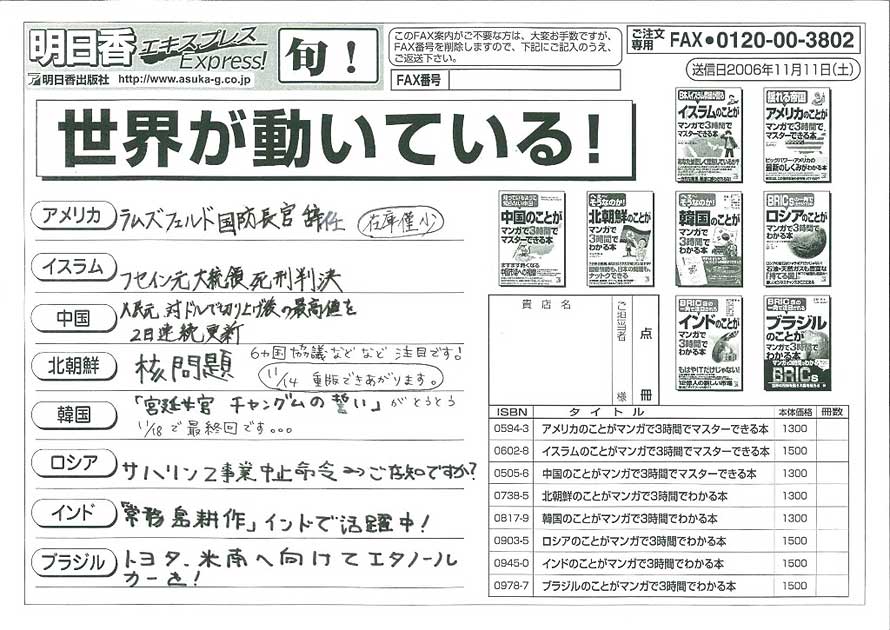 明日香 エキスプレス Express!
旬!
明日香出版社 http://www.asuka-g.co.jp
このFAX案内がご不要な方は、大変お手数ですが、
FAX番号を削除しますので、下記にご記入のうえ、
ご返送下さい。
FAX番号
ご注文専用 FAX●0120-00-3802
送信日2006年11月11日(土)
世界が動いている!
アメリカ ラムズフェルド国防長官 辞任 在庫僅少
イスラム フセイン元大統領 死刑判決
中国 人民元 対ドルで切り上げ後の最高値を
2日連続更新
北朝鮮 核問題 6ヵ国協議などなど注目です!
11/14 重版できあがります。
韓国 「宮廷女官 チャングムの誓い」がとうとう
11/18で最終回です。。。
ロシア サハリン2事業中止命令 ご存知ですか?
インド 「常務島耕作」インドで活躍中!
ブラジル トヨタ、米南へ向けてエタノール
カーを!
イスラムのことが
マンガで3時間で
マスターできる本
揺れる帝国
アメリカのことが
マンガで3時間で
マスターできる本
ビッグパワー・アメリカの
最新のしくみがわかる本
中国のことが
マンガで3時間で
マスターできる本
そうなのか!
北朝鮮のことが
マンガで3時間で
わかる本
そうなのか!
韓国のことが
マンガで3時間で
わかる本
BRICs
ロシアのことが
マンガで3時間で
わかる本
石油・天然ガスも豊富な
BRICs
インドのことが
マンガで3時間で
わかる本
もはやITだけじゃない!
BRICs
ブラジル
のことが
マンガで3時間で
わかる本
BRICs
貴店名
ご担当者 様
点
冊
ISBN タイトル 本体価格 冊数
0594-3 アメリカのことがマンガで3時間でマスターできる本 1300
0602-8 イスラムのことがマンガで3時間でマスターできる本 1500
0505-6 中国のことがマンガで3時間でマスターできる本 1300
0738-5 北朝鮮のことがマンガで3時間でわかる本 1300
0817-9 韓国のことがマンガで3時間でわかる本 1300
0903-5 ロシアのことがマンガで3時間でわかる本 1500
0945-0 インドのことがマンガで3時間でわかる本 1500
0978-7 ブラジルのことがマンガで3時間でわかる本 1500